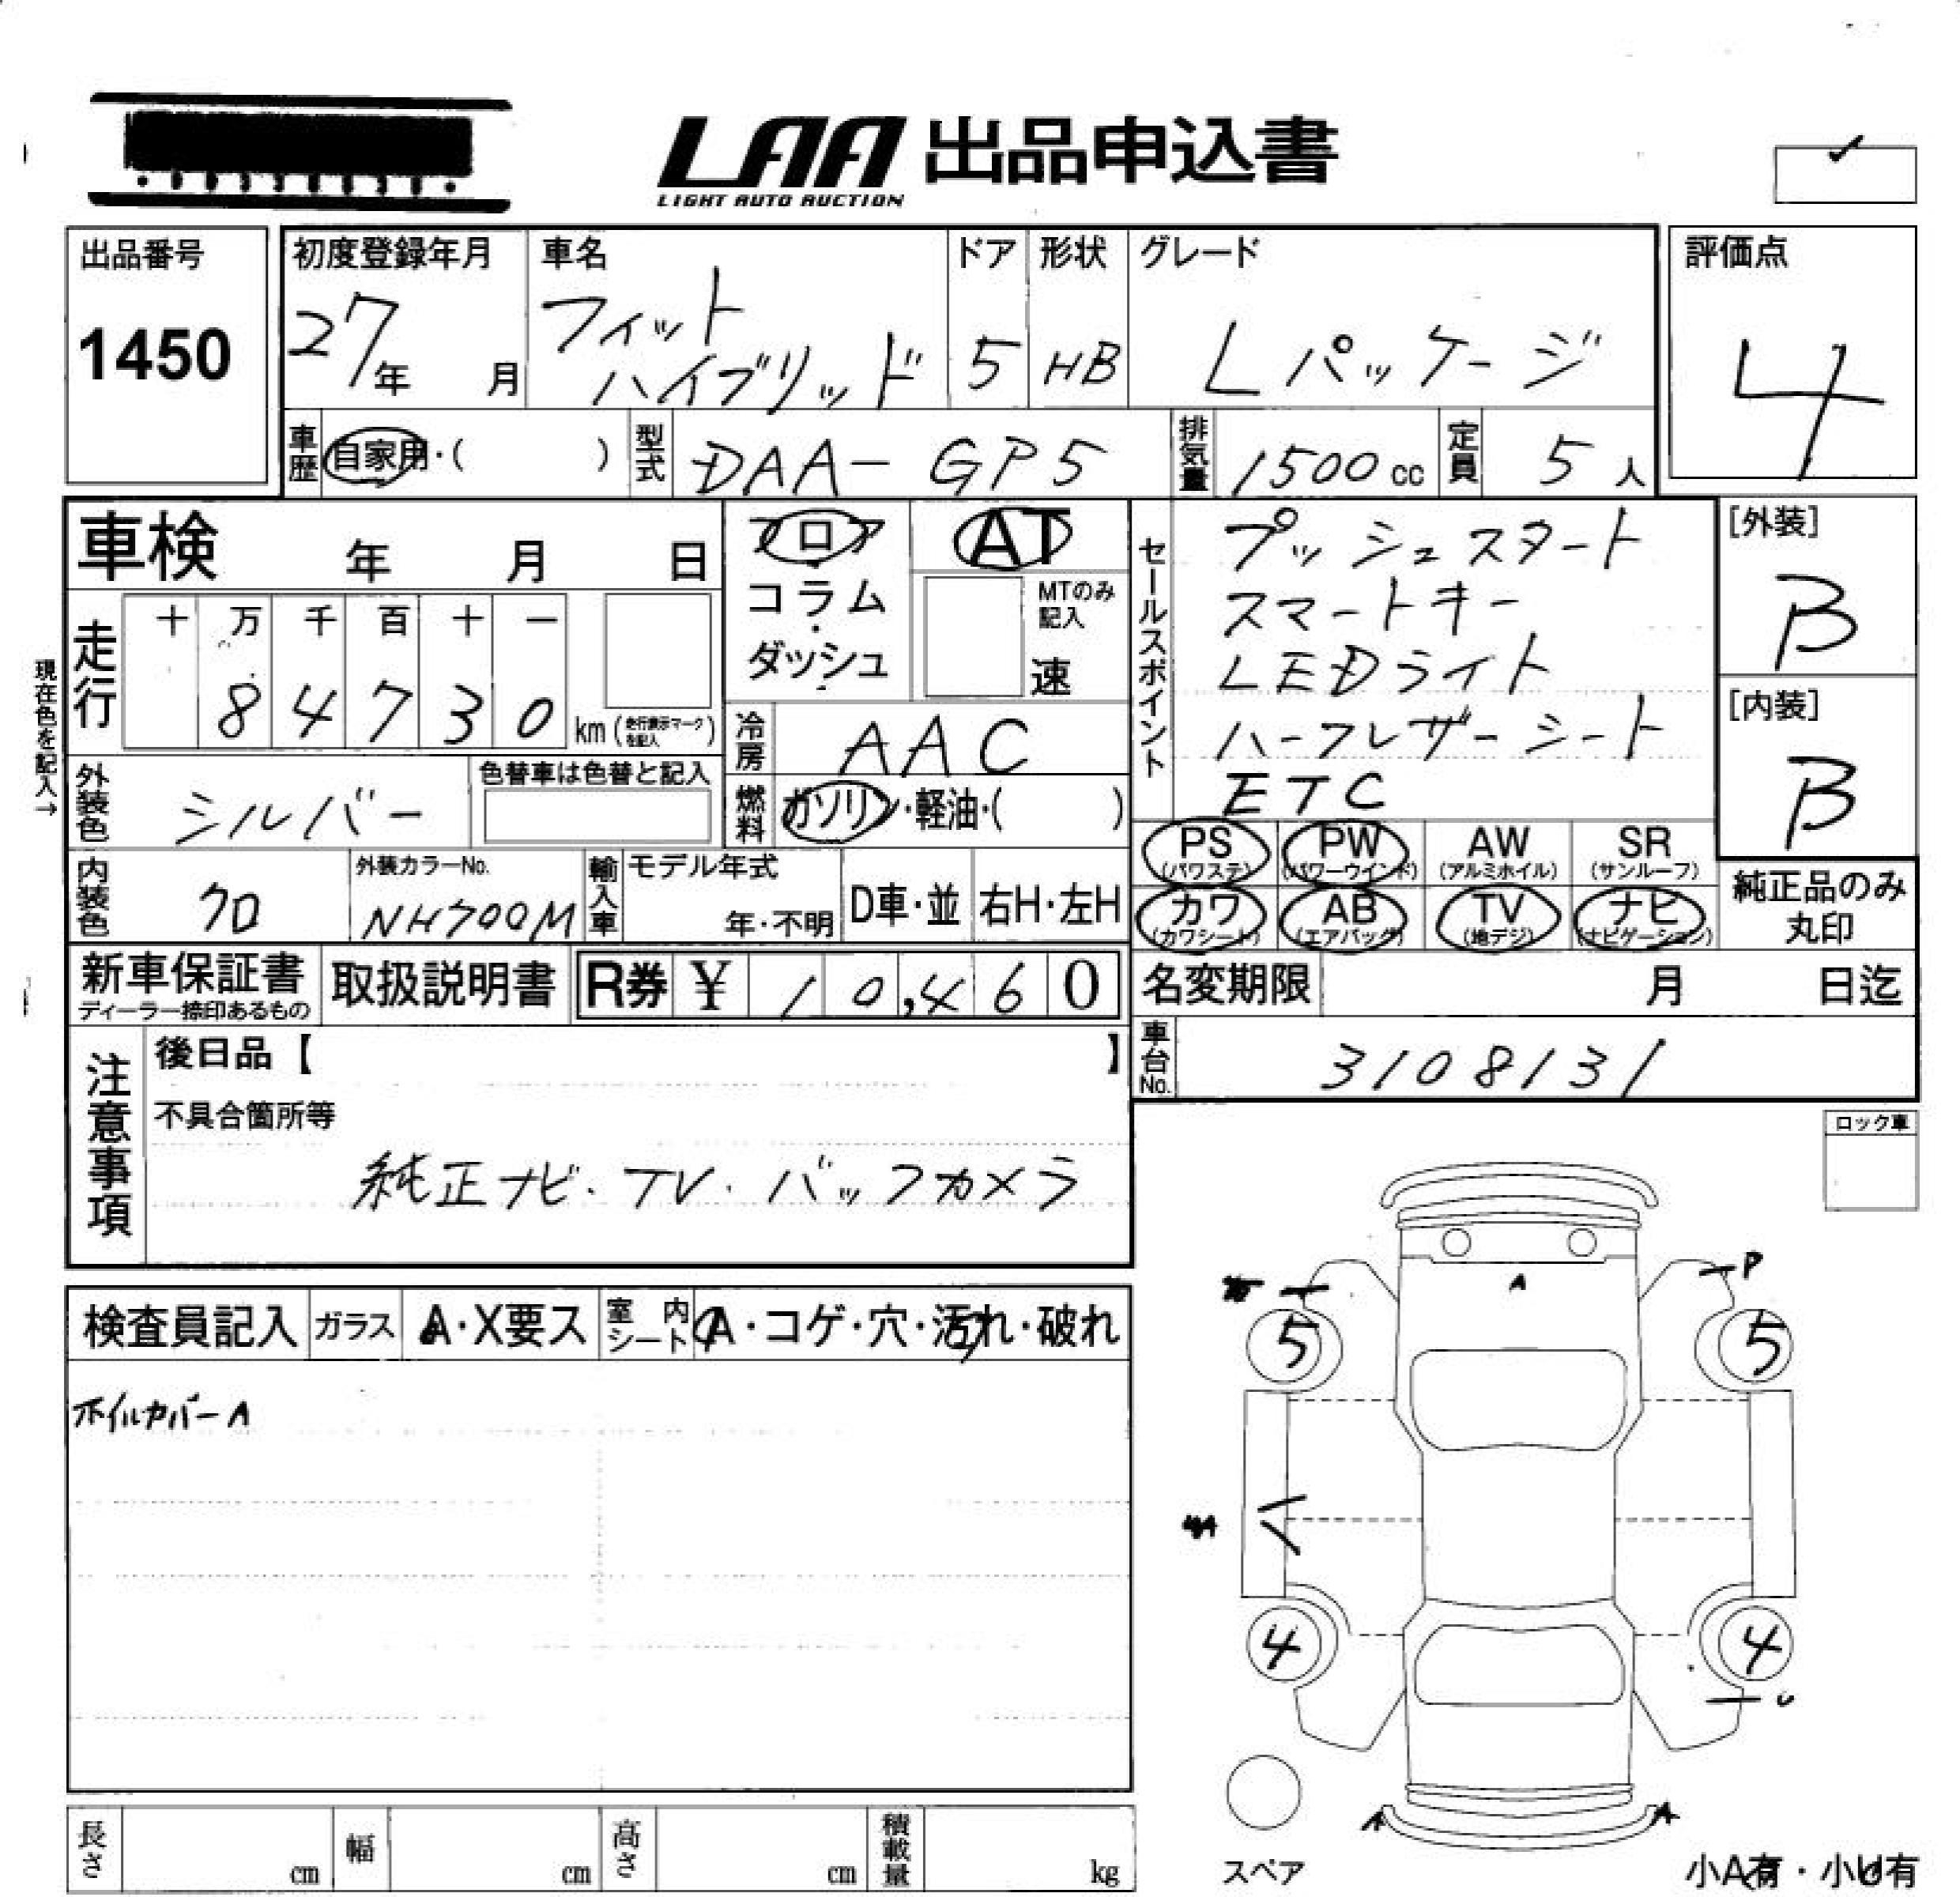 LAA 出品申込書
LIGHT AUTO AUCTION
出品番号
1450
初度登録年月
27年 月
車名
フィット
ハイブリッド
ドア
5
形状
HB
グレード
Lパッケージ
評価点
4
車歴 自家用・( )
型式 DAA-GP5
排気量 1500cc
定員 5人
車検 年 月 日
フロア
コラム
ダッシュ
AT
MTのみ
記入
速
セールスポイント
プッシュスタート
スマートキー
LEDライト
ハーフレザーシート
ETC
[外装]
B
[内装]
B
現在色を記入→
走行
十 万 千 百 十 一
8 4 7 3 0 km (走行表示マークを記入)
冷房 AAC
外装色 シルバー
色替車は色替と記入
燃料 ガソリン・軽油・( )
PS (パワステ)
PW (パワーウインド)
AW (アルミホイル)
SR (サンルーフ)
カワ (カワシート)
AB (エアバッグ)
TV (地デジ)
ナビ (ナビゲーション)
純正品のみ
丸印
内装色 クロ
外装カラーNo.
NH700M
輸入車
モデル年式
年・不明
D車・並
右H・左H
新車保証書
ディーラー捺印あるもの
取扱説明書
R券 ¥ 10,460
名変期限 月 日迄
車台No. 3108131
注意事項
後日品【 】
不具合箇所等
純正ナビ・TV・バックカメラ
ロック車
検査員記入
ガラス A・X要ス
室内シート A・コゲ・穴・汚れ・破れ
ホイルカバーA
A
P
5
5
4
4
U
A
A
スペア
小A有・小U有
長さ cm
幅 cm
高さ cm
積載量 kg